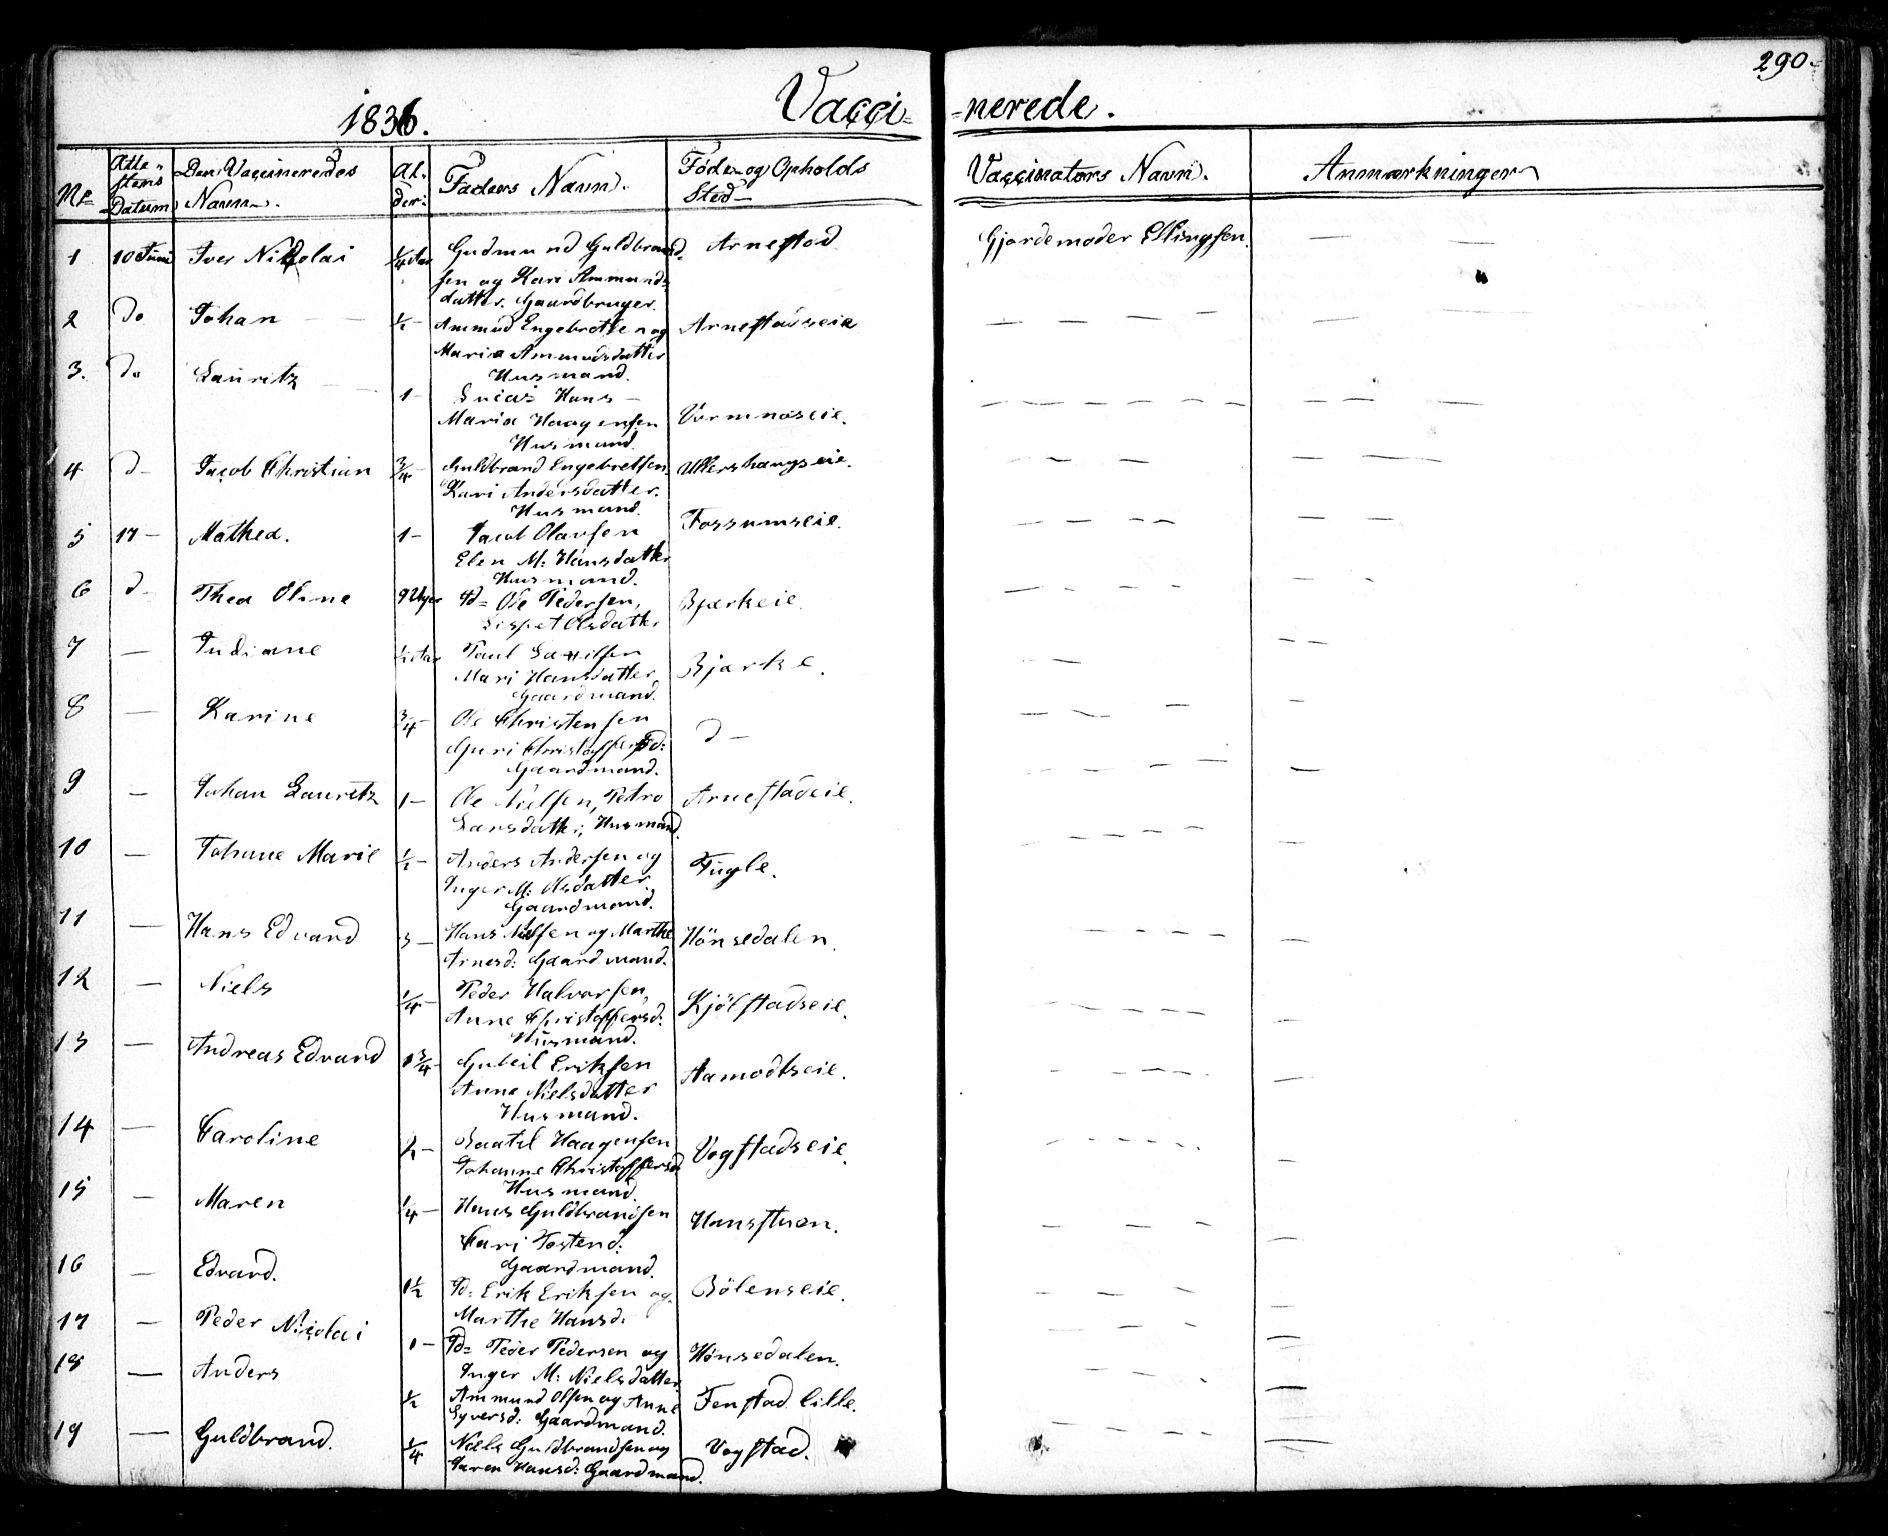 290.
1836. Vacci= =nerede.
No Atte= stens Datum Den Vaccineredes Navn. Al= der: Faders Navn. Føde= og Opholds Sted— Vaccinators Navn. Anmærkninger
1 10 Juni Iver Nikolai 1/4 Aar Gudmund Guldbrand= Arnestad Gjordemoder Ellingsen. — —
sen og Kari Ammunds=
datter. Gaardbruger.
2 do Johan — — 1/2 — Ammud Engebretsen og Arnestadseie — — — — — — —
Maria Ammudsdatter
Husmand.
3. do Lauritz — — 1 — Hans — Vormnæseie. — — — — — — — — —
Maria Haagensen
Husmand.
4 d— Jacob Christian 3/4 — Guldbrand Engebretsen. Ullershaugseie. — — — — —
Kari Andersdatter.
Husmand.
5 17 — Mathea. 1 — Jacob Olavsen Fossumseie. — — — — — —
Elen M: Hansdatter
Husmand.
6 d— Thea Oline 9 Uger Ole Pedersen, Bjærkeie. — — — — —
Lispet Olsdatter
7 — Indiane 1/2 Aar Paul Bjærke. — — — —
Mari Hansdatter,
Gaardmand.
8 — Karine 3/4 — Ole Christensen d — — — — —
Guri Christoffersd:
Gaardmand.
9 — Johan Lauretz 1 — Ole Nielsen, Petro Arnestadeie. — — — — —
Larsdatter; Husmand.
10 — Johane Marie 1/2 — Anders Andersen og Fugle. — — — — —
Inger M: Olsdatter.
Gaardmand.
11 — Hans Edvard 3 — Hans Nielsen og Marthe Hönsedalen. — — — — — —
Arnesd: Gaardmand.
12 — Niels 1/4 — Peder Halvorsen, Kjölstadseie. — — — — —
Anne Christoffersd:
Husmand.
13 — Andreas Edvard 1 3/4 — Eriksen Aamodtseie. — — — — —
Anne Nielsdatter
Husmand.
14 — Caroline 2 — Haagensen Vogstadseie. — — — — —
Johanne Christoffersd
Husmand.
15 — Maren 1/4 — Hans Guldbrandsen Hansstuen. — — — —
Kari Tostend:
Gaardmand.
16 — Edvard. 1 1/2 Erik Eriksen og Bölenseie. — — — —
Marthe Hansd:
17 — Peder Nicolai 1 — Peder Pedersen og Hönsedalen. — — — —
Inger M: Nielsdatter
18 — Anders 1/2 Ammund Olsen og Anne Fenstad lille. — — — —
Syversd: Gaardmand.
19 — Guldbrand. 1/4 Niels Guldbrandsen og Vogstad. — — — —
Hansd: Gaardmand.